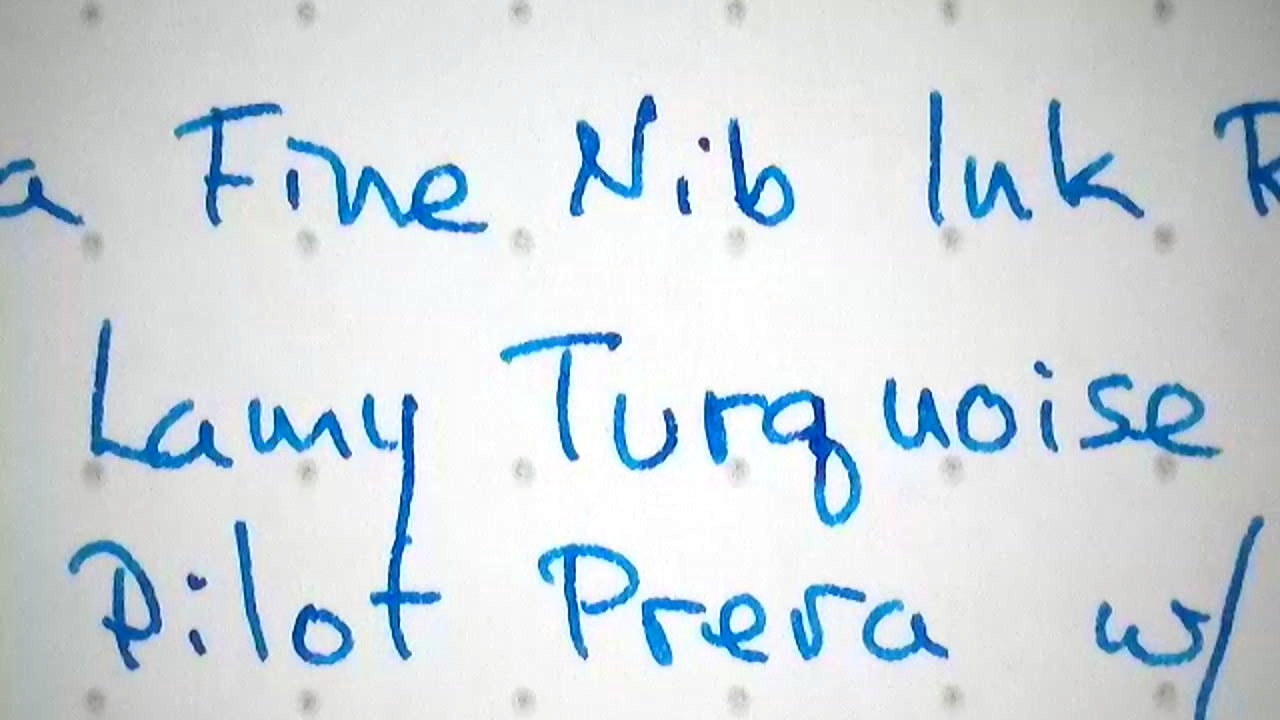 a Fine Nib Ink R
Lamy Turquoise
Pilot Prera w/